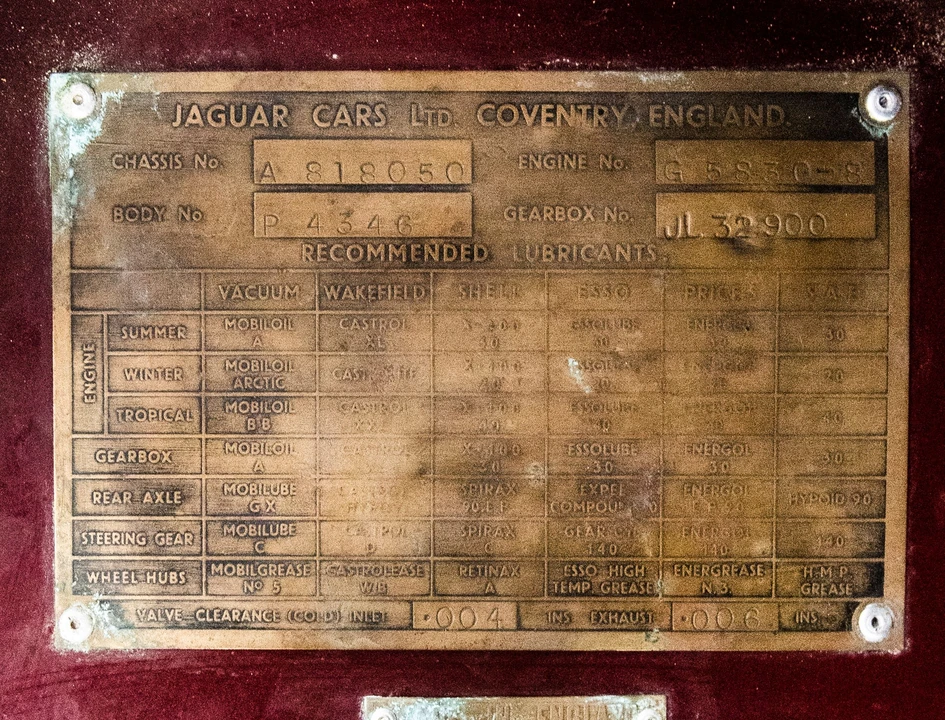 JAGUAR CARS LTD. COVENTRY ENGLAND.
CHASSIS No. A 818050 ENGINE No. G 5830-8
BODY No P 4346 GEARBOX No. JL 32900
RECOMMENDED LUBRICANTS.
VACUUM WAKEFIELD SHELL ESSO PRICE'S S.A.E
ENGINE
SUMMER MOBILOIL A CASTROL XL X-100 30 ESSOLUBE 30 ENERGOL 30 30
WINTER MOBILOIL ARCTIC CASTROLITE X-100
TROPICAL MOBILOIL B B CASTROL XXL X-100 40 ESSOLUBE ENERGOL 40
GEARBOX MOBILOIL A X-100 30 ESSOLUBE 30 ENERGOL 30 30
REAR AXLE MOBILUBE G X CASTROL SPIRAX 90.E.P. EXPEE COMPOUND ENERGOL HYPOID 90
STEERING GEAR MOBILUBE C CASTROL D SPIRAX C GEAR OIL 140 ENERGOL 140 140
WHEEL HUBS MOBILGREASE No 5 CASTROLEASE W/B RETINAX A ESSO HIGH TEMP. GREASE ENERGREASE N.3. H.M.P. GREASE
VALVE CLEARANCE (COLD) INLET .004 INS EXHAUST .006 INS